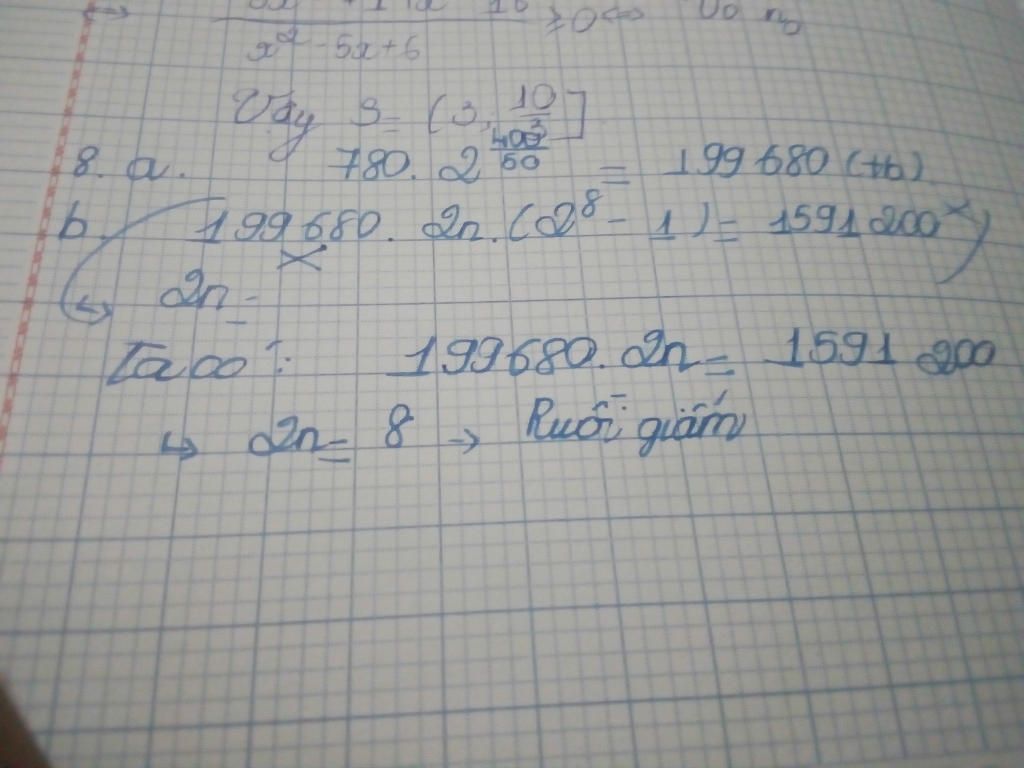 x² - 5x + 6 ≥ 0 ⇔
Vậy S = (3; 10/3]
8. a. 780 . 2^(400/50) = 199 680 (tb)
b. 199 680 . 2n . (2⁸ - 1) = 1591 200
↔ 2n =
Ta có : 199680 . 2n = 1591 200
↳ 2n = 8 → Ruồi giấm